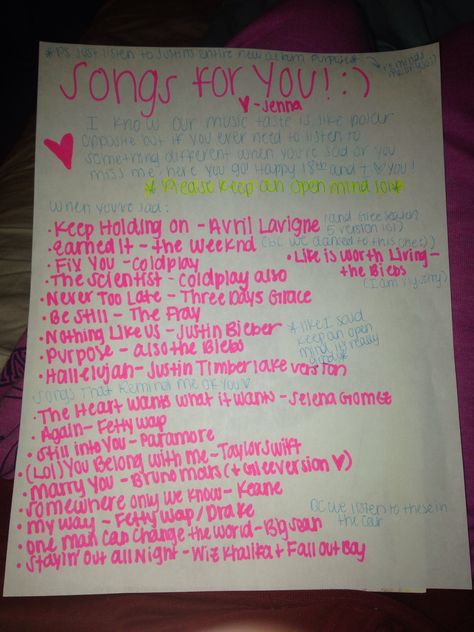 *PS Just listen to Justin's entire new album Purpose*
Songs for You! :)
♥-Jenna
I know our music taste is like polar
opposite but if you ever need to listen to
something different when you're sad or you
miss me, here you go! Happy 18th and I ♥ you!
*Please keep an open mind lol*
When you're sad:
• Keep Holding on - Avril Lavigne (and Glee season 5 version lol)
• earned it - the weeknd (bc we danced to this (hey))
• Fix You - Coldplay
• Life is worth living - the Biebs
(I am crying)
• The scientist - coldplay also
• Never Too Late - Three Days Grace
• Be Still - The Fray
• Nothing Like Us - Justin Bieber
*like I said
keep an open
mind it's really
good*
• Purpose - also the Biebs
• Hallelujah - Justin Timberlake version
Songs That Remind me of You ♡
• The Heart wants what it wants - Selena Gomez
• Again - Fetty Wap
• Still into You - Paramore
• (Lol) You Belong with me - Taylor Swift
• Marry You - Bruno Mars (+ Glee version ♥)
• somewhere only we know - Keane
• my way - Fetty Wap / Drake
bc we listen to these in
the car
• one man can change the world - Big Sean
• Stayin' Out all Night - Wiz Khalifa + Fall Out Boy